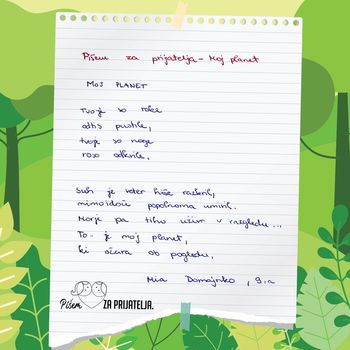 Pišem za prijatelja - Moj planet
MOJ PLANET
Tvoje so roke
odtis pustile,
tvoje so noge
roso odkrile.
Suh je veter hiše razkril,
mimoidoče popolnoma umiril.
Morje pa tiho uživa v razgledu...,
To je moj planet,
ki očara ob pogledu.
Mia Domajnko, 9.a
Pišem ZA PRIJATELJA.